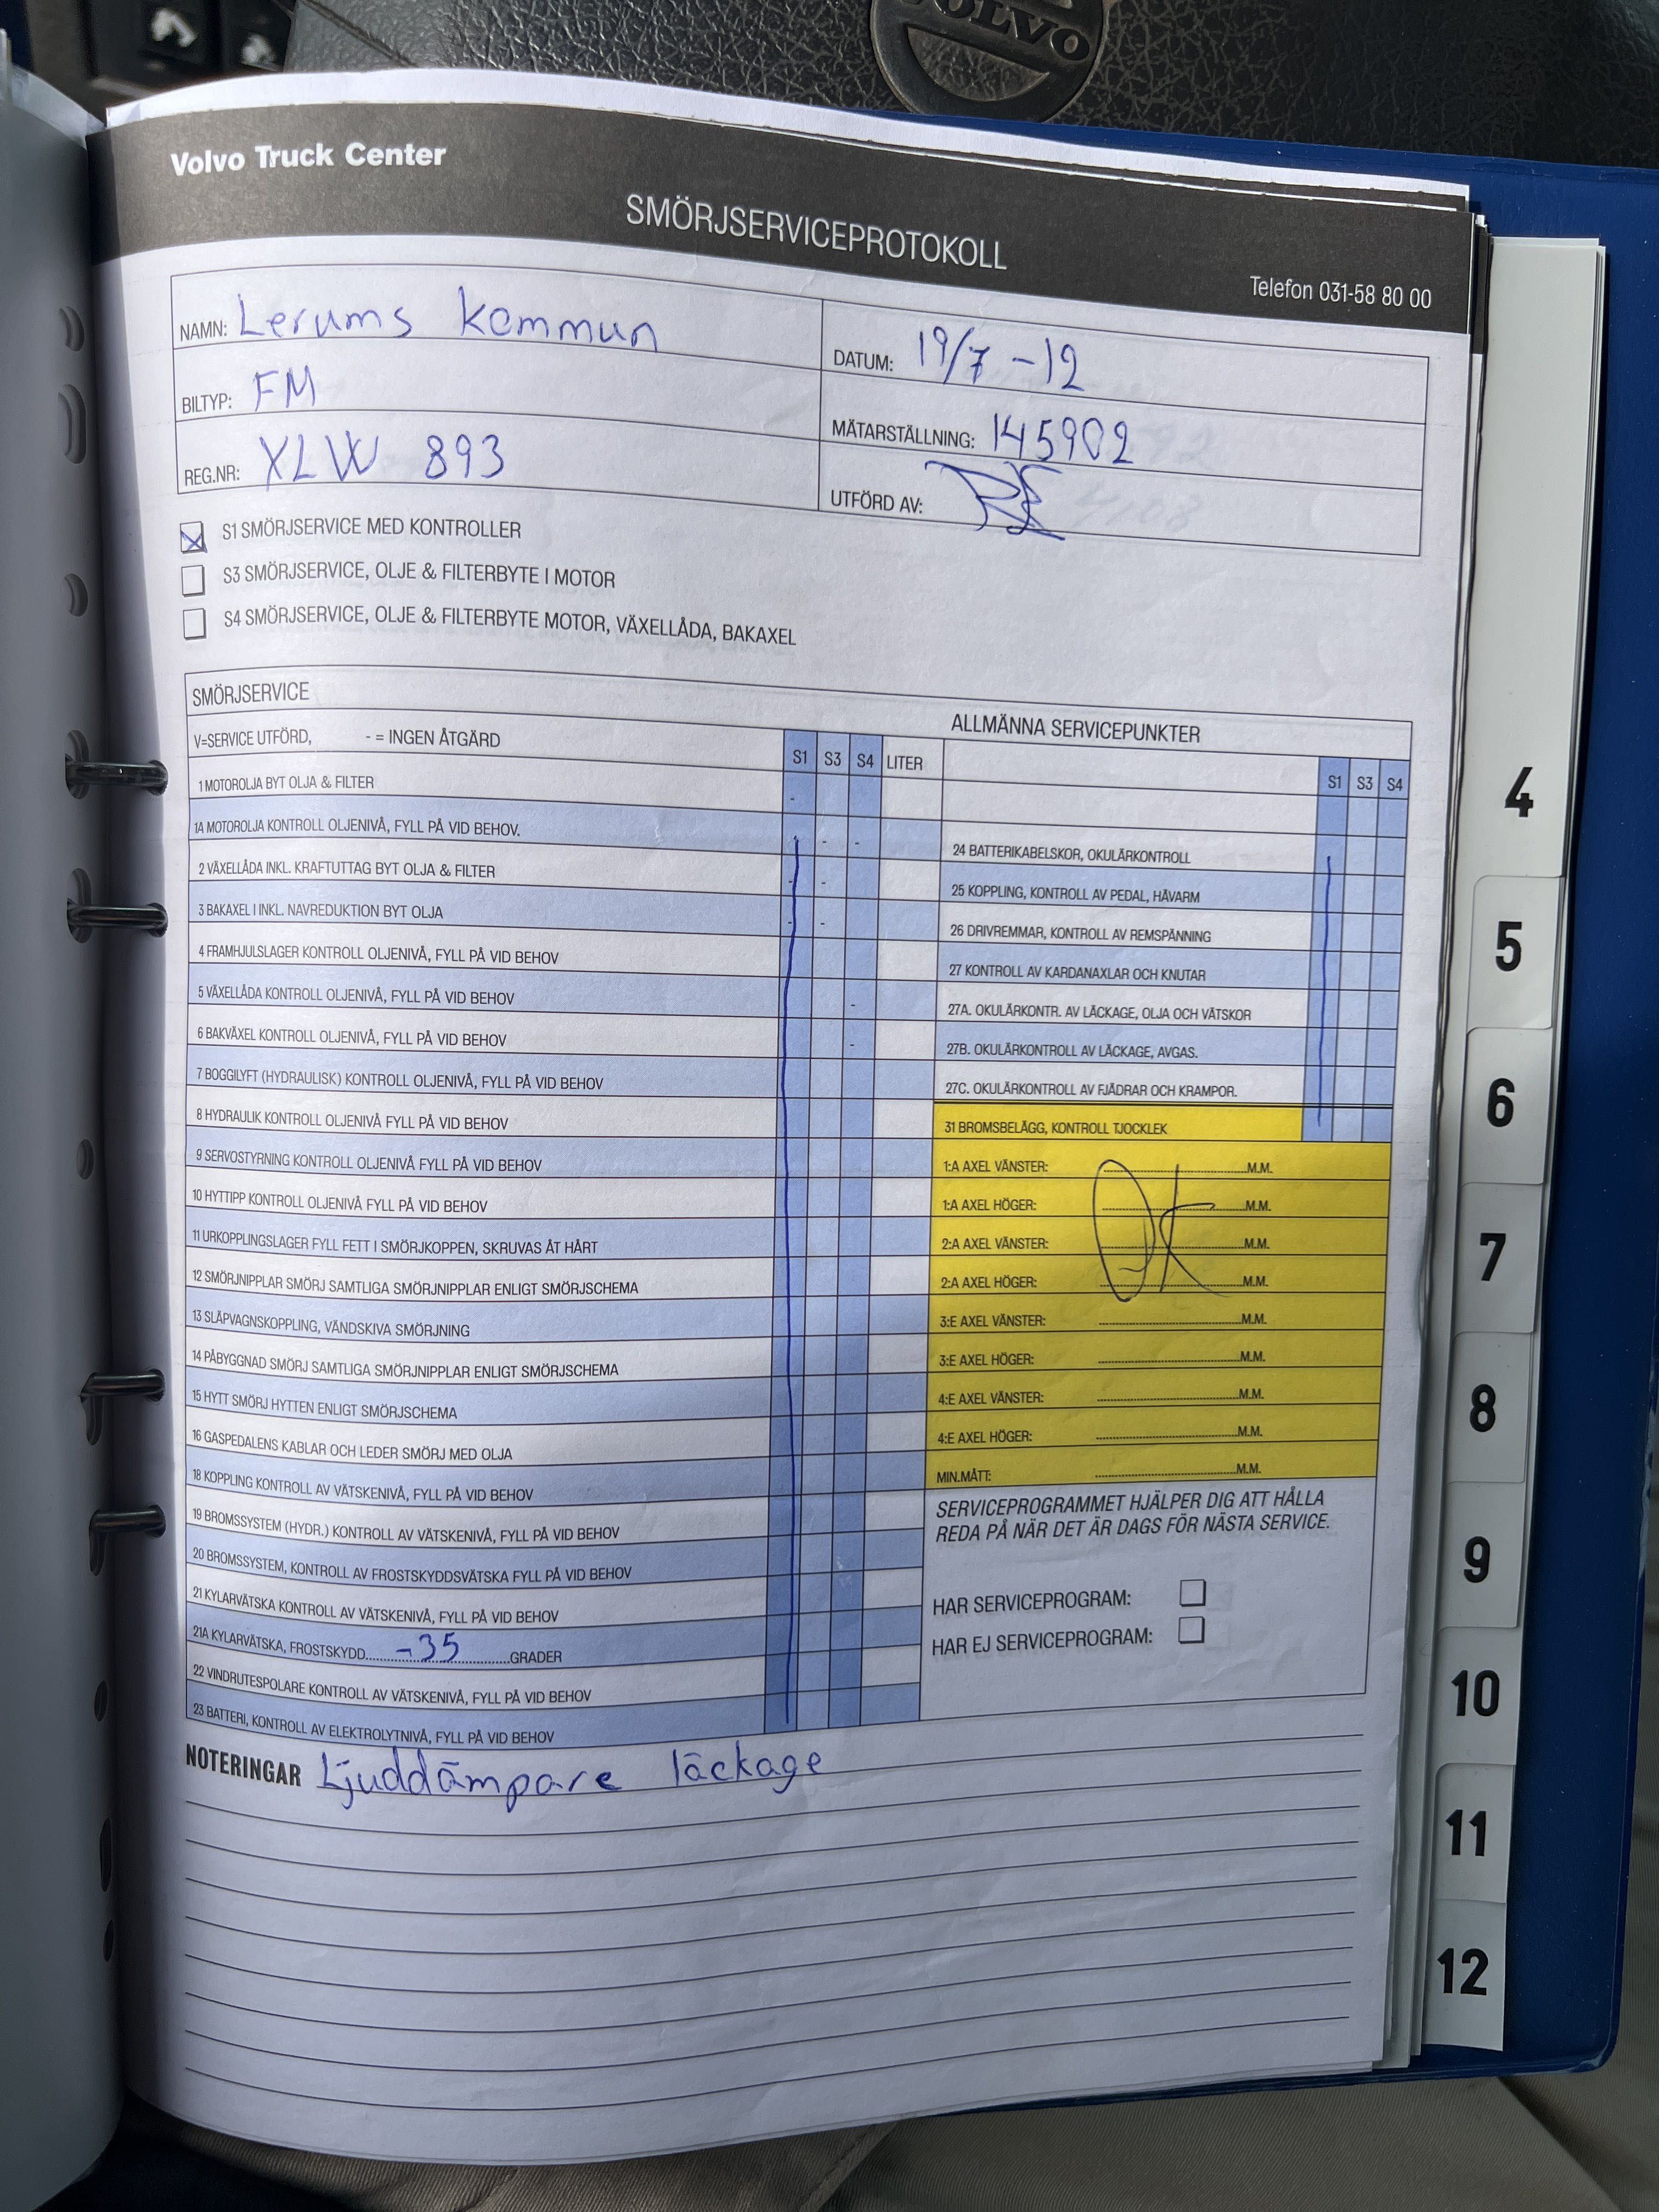 VOLVO
Volvo Truck Center
SMÖRJSERVICEPROTOKOLL
Telefon 031-58 80 00
NAMN: Lerums kommun
DATUM: 19/7 -12
BILTYP: FM
MÄTARSTÄLLNING: 145902
REG.NR: XLW 893
UTFÖRD AV:
S1 SMÖRJSERVICE MED KONTROLLER
S3 SMÖRJSERVICE, OLJE & FILTERBYTE I MOTOR
S4 SMÖRJSERVICE, OLJE & FILTERBYTE MOTOR, VÄXELLÅDA, BAKAXEL
SMÖRJSERVICE
V=SERVICE UTFÖRD, - = INGEN ÅTGÄRD
S1 S3 S4 LITER
1 MOTOROLJA BYT OLJA & FILTER -
1A MOTOROLJA KONTROLL OLJENIVÅ, FYLL PÅ VID BEHOV. - -
2 VÄXELLÅDA INKL. KRAFTUTTAG BYT OLJA & FILTER - -
3 BAKAXEL I INKL. NAVREDUKTION BYT OLJA - -
4 FRAMHJULSLAGER KONTROLL OLJENIVÅ, FYLL PÅ VID BEHOV
5 VÄXELLÅDA KONTROLL OLJENIVÅ, FYLL PÅ VID BEHOV -
6 BAKVÄXEL KONTROLL OLJENIVÅ, FYLL PÅ VID BEHOV -
7 BOGGILYFT (HYDRAULISK) KONTROLL OLJENIVÅ, FYLL PÅ VID BEHOV
8 HYDRAULIK KONTROLL OLJENIVÅ FYLL PÅ VID BEHOV
9 SERVOSTYRNING KONTROLL OLJENIVÅ FYLL PÅ VID BEHOV
10 HYTTIPP KONTROLL OLJENIVÅ FYLL PÅ VID BEHOV
11 URKOPPLINGSLAGER FYLL FETT I SMÖRJKOPPEN, SKRUVAS ÅT HÅRT
12 SMÖRJNIPPLAR SMÖRJ SAMTLIGA SMÖRJNIPPLAR ENLIGT SMÖRJSCHEMA
13 SLÄPVAGNSKOPPLING, VÄNDSKIVA SMÖRJNING
14 PÅBYGGNAD SMÖRJ SAMTLIGA SMÖRJNIPPLAR ENLIGT SMÖRJSCHEMA
15 HYTT SMÖRJ HYTTEN ENLIGT SMÖRJSCHEMA
16 GASPEDALENS KABLAR OCH LEDER SMÖRJ MED OLJA
18 KOPPLING KONTROLL AV VÄTSKENIVÅ, FYLL PÅ VID BEHOV
19 BROMSSYSTEM (HYDR.) KONTROLL AV VÄTSKENIVÅ, FYLL PÅ VID BEHOV
20 BROMSSYSTEM, KONTROLL AV FROSTSKYDDSVÄTSKA FYLL PÅ VID BEHOV
21 KYLARVÄTSKA KONTROLL AV VÄTSKENIVÅ, FYLL PÅ VID BEHOV
21A KYLARVÄTSKA, FROSTSKYDD -35 GRADER
22 VINDRUTESPOLARE KONTROLL AV VÄTSKENIVÅ, FYLL PÅ VID BEHOV
23 BATTERI, KONTROLL AV ELEKTROLYTNIVÅ, FYLL PÅ VID BEHOV
ALLMÄNNA SERVICEPUNKTER
S1 S3 S4
24 BATTERIKABELSKOR, OKULÄRKONTROLL
25 KOPPLING, KONTROLL AV PEDAL, HÄVARM
26 DRIVREMMAR, KONTROLL AV REMSPÄNNING
27 KONTROLL AV KARDANAXLAR OCH KNUTAR
27A. OKULÄRKONTR. AV LÄCKAGE, OLJA OCH VÄTSKOR
27B. OKULÄRKONTROLL AV LÄCKAGE, AVGAS.
27C. OKULÄRKONTROLL AV FJÄDRAR OCH KRAMPOR.
31 BROMSBELÄGG, KONTROLL TJOCKLEK
1:A AXEL VÄNSTER: M.M.
1:A AXEL HÖGER: M.M.
OK
2:A AXEL VÄNSTER: M.M.
2:A AXEL HÖGER: M.M.
3:E AXEL VÄNSTER: M.M.
3:E AXEL HÖGER: M.M.
4:E AXEL VÄNSTER: M.M.
4:E AXEL HÖGER: M.M.
MIN.MÅTT: M.M.
SERVICEPROGRAMMET HJÄLPER DIG ATT HÅLLA
REDA PÅ NÄR DET ÄR DAGS FÖR NÄSTA SERVICE.
HAR SERVICEPROGRAM:
HAR EJ SERVICEPROGRAM:
NOTERINGAR Ljuddämpare läckage
4
5
6
7
8
9
10
11
12